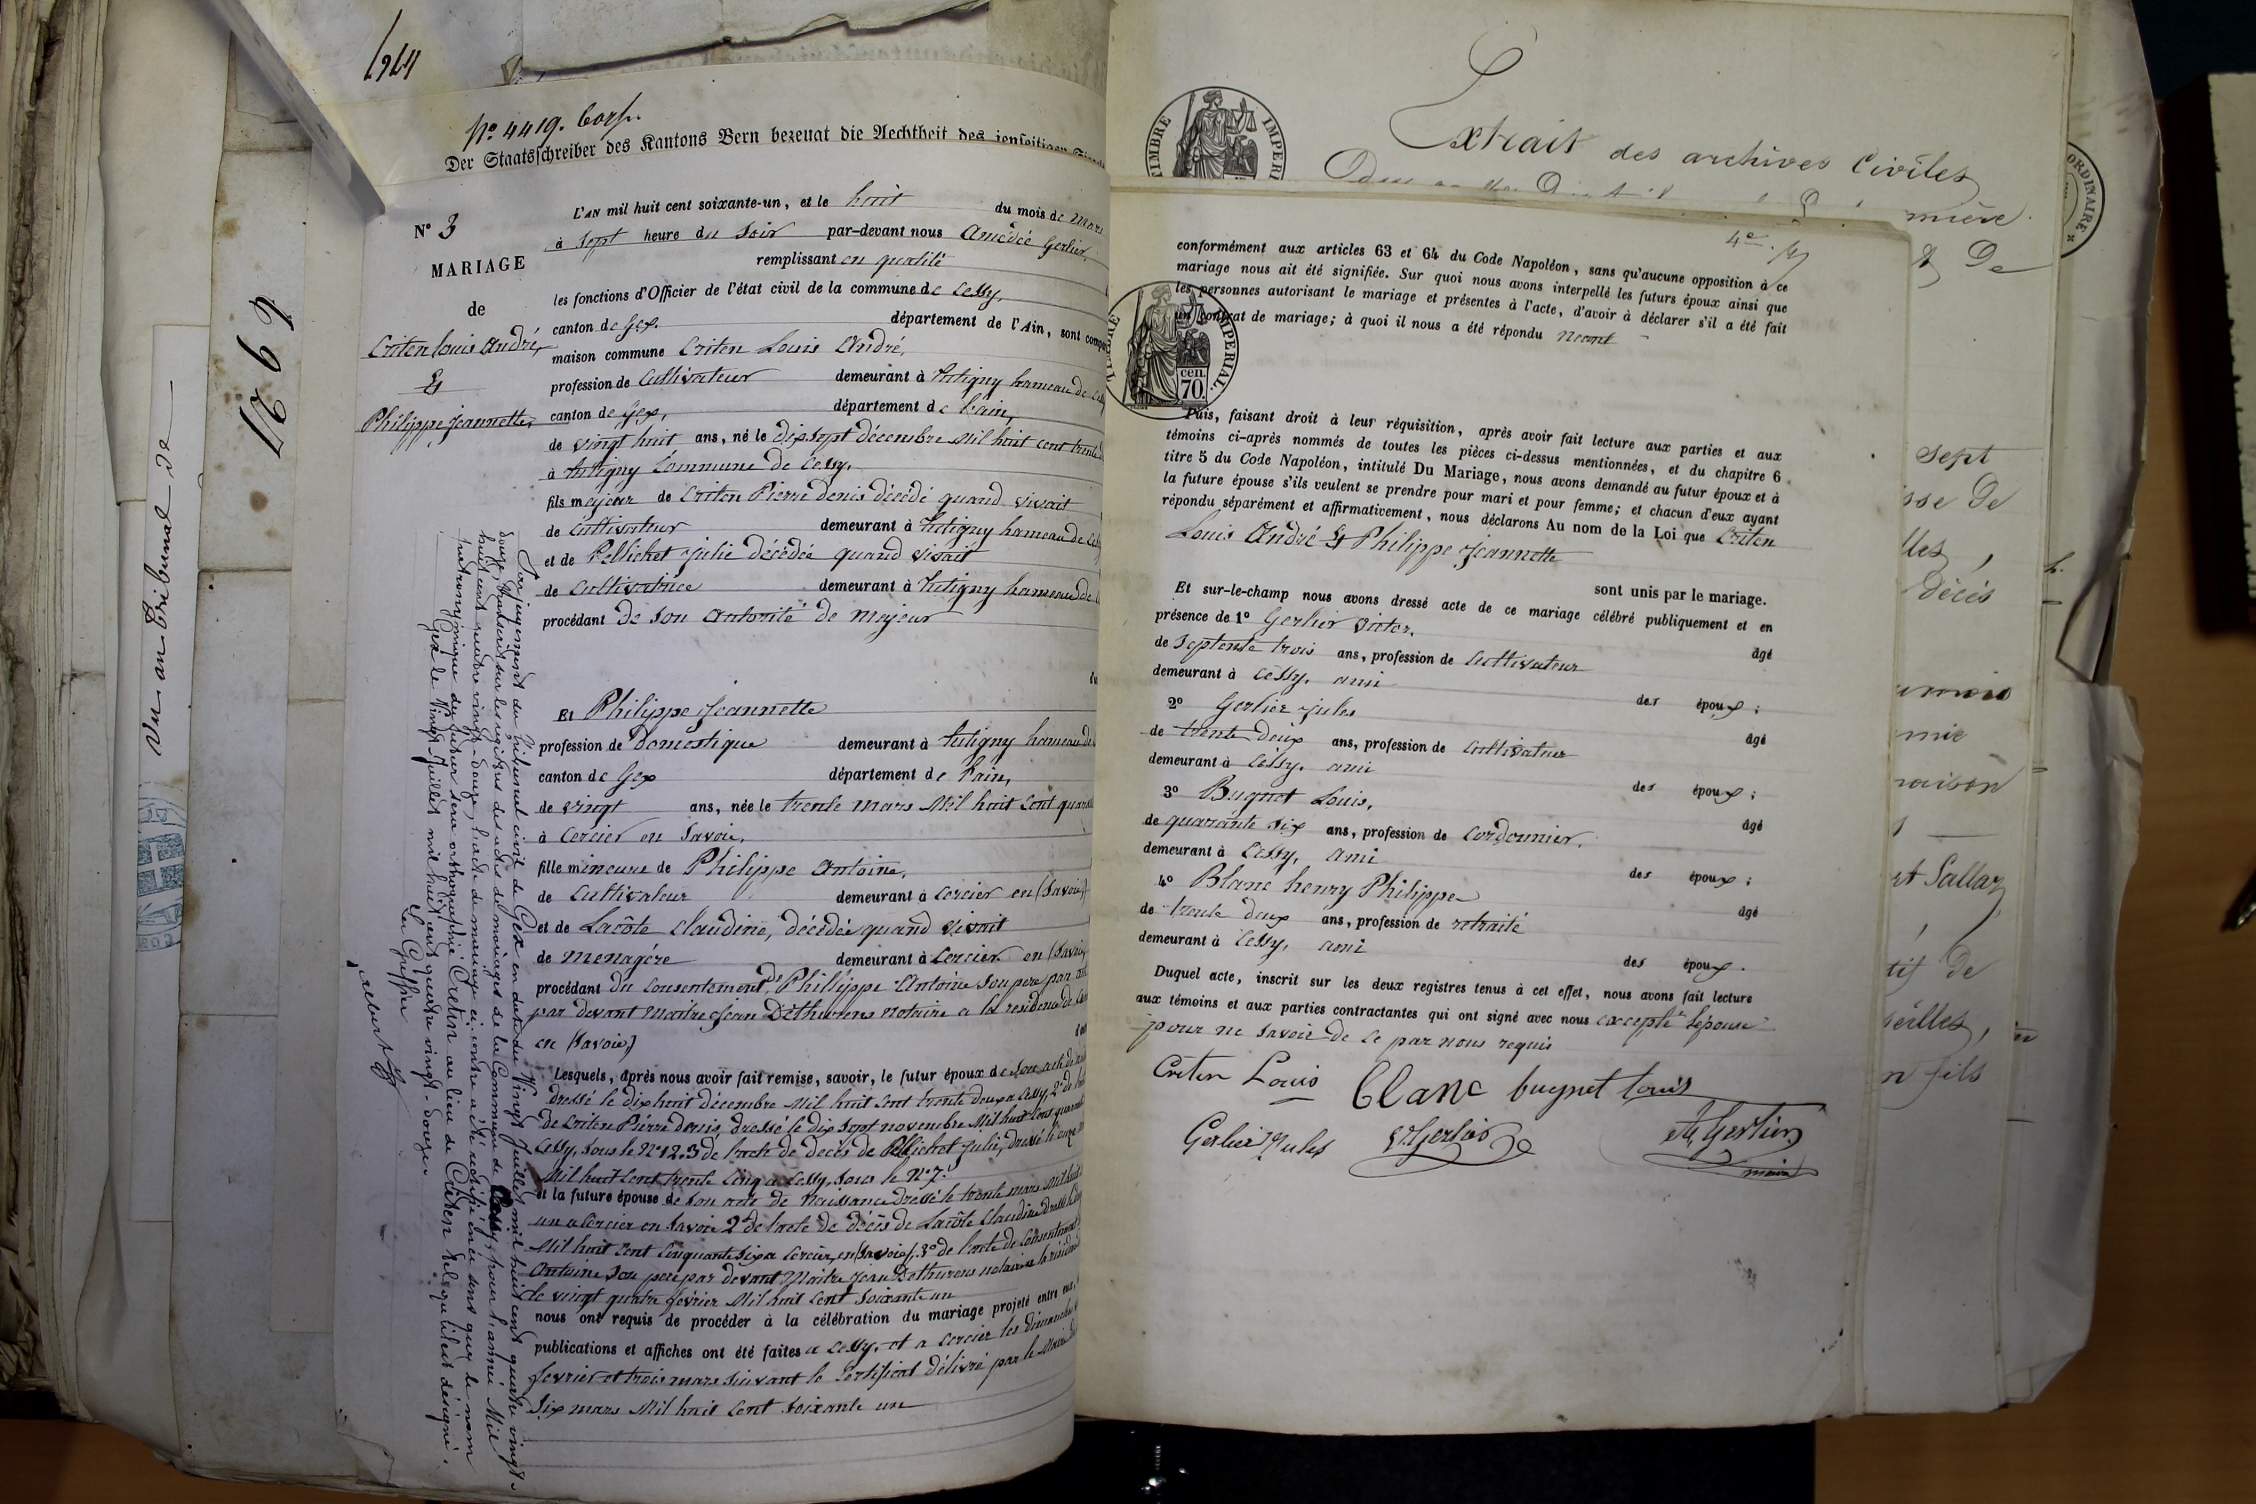 Nº 4419. Corp.
Der Staatsschreiber des Kantons Bern bezeugt die Aechtheit des jenseitigen
Vu au Tribunal de
Nº 3
MARIAGE
de
Criten Louis André,
Et
Philippe Jeannette,
L'AN mil huit cent soixante-un, et le huit du mois de mars
à sept heure du soir par-devant nous Amédée Gerlier,
remplissant en qualité
les fonctions d'Officier de l'état civil de la commune de Cessy,
canton de Gex. département de l'Ain, sont
maison commune Criten Louis André,
profession de Cultivateur demeurant à Tutigny hameau de
canton de Gex, département de l'ain,
de vingt huit ans, né le dix sept décembre Mil huit cent trente
à Tutigny Commune de Cessy.
fils majeur de Criten Pierre denis décédé quand vivait
de Cultivateur demeurant à Tutigny hameau de
et de Pellichet Julie décédée quand vivait
de Cultivatrice demeurant à Tutigny hameau de
procédant de son autorité de majeur
Et Philippe Jeannette
profession de Domestique demeurant à Tutigny hameau de
canton de Gex département de l'ain,
de vingt ans, née le trente mars Mil huit cent
à Cercier en Savoie,
fille mineure de Philippe Antoine,
de Cultivateur demeurant à Cercier en (Savoie)
et de Lacôte Claudine, décédée quand vivait
de menagére demeurant à Cercier en (Savoie)
procédant du consentement de Philippe Antoine son pere par
par devant Maitre Jean Dethurens notaire a la residence de
en (Savoie,)
Lesquels, après nous avoir fait remise, savoir, le futur époux de son acte de
dressé le dix huit décembre Mil huit cent trente deux a Cessy, 2º de
De Criten Pierre denis, dressé le dix sept novembre Mil huit cent
Cessy, sous le Nº 12. 3º de l'acte de décès de Pellichet Julie, dressé le
Mil huit cent trente cinq a Cessy, sous le Nº 7.
et la future épouse de son acte de Naissance dressé le trente mars Mil huit
un a Cercier en Savoie 2º de l'acte de décès de Lacôte Claudine
Mil huit cent cinquante six a Cercier, en (Savoie). 3º de l'acte de consentement
Antoine son pere par devant Maitre Jean Dethurens notaire
le vingt quatre février Mil huit cent soixante un
nous ont requis de procéder à la célébration du mariage projeté entre eux,
publications et affiches ont été faites a Cessy, et a Cercier les dimanches
fevrier et trois mars suivant le certificat délivré par le
Six mars Mil huit cent soixante un
Par jugement du Tribunal civil de Gex en date du Vingt Juillet mil huit cent quatre vingt-
douze, transcrit sur les registres des actes de mariages de la Commune de Cessy, pour l'année Mil
huit cent quatre vingt-douze, l'acte de mariage ci-contre a été rectifié en ce sens que le nom
patronymique du futur sera orthographié Cretin au lieu de Criten tel que l'écrit désigné.
Gex le Vingt-Juillet mil huit cent quatre vingt-douze.
Le Greffier
Extrait des archives Civiles
TIMBRE IMPERIAL
ORDINAIRE
conformément aux articles 63 et 64 du Code Napoléon, sans qu'aucune opposition à ce
mariage nous ait été signifiée. Sur quoi nous avons interpellé les futurs époux ainsi que
les personnes autorisant le mariage et présentes à l'acte, d'avoir à déclarer s'il a été fait
un contrat de mariage; à quoi il nous a été répondu Neant
TIMBRE IMPERIAL.
cen.
70.
Puis, faisant droit à leur réquisition, après avoir fait lecture aux parties et aux
témoins ci-après nommés de toutes les pièces ci-dessus mentionnées, et du chapitre 6
titre 5 du Code Napoléon, intitulé Du Mariage, nous avons demandé au futur époux et à
la future épouse s'ils veulent se prendre pour mari et pour femme; et chacun d'eux ayant
répondu séparément et affirmativement, nous déclarons Au nom de la Loi que Criten
Louis André Et Philippe Jeannette
sont unis par le mariage.
Et sur-le-champ nous avons dressé acte de ce mariage célébré publiquement et en
présence de 1º Gerlier Victor.
âgé
de Septente trois ans, profession de Cultivateur
demeurant à Cessy, ami
des époux;
2º Gerlier Jules
âgé
de trente deux ans, profession de Cultivateur
demeurant à Cessy, ami
des époux;
3º Bugnet Louis,
âgé
de quarante six ans, profession de Cordonnier,
demeurant à Cessy, ami
des époux;
4º Blanc henry Philippe
âgé
de trente deux ans, profession de retraité
demeurant à Cessy, ami
des époux.
Duquel acte, inscrit sur les deux registres tenus à cet effet, nous avons fait lecture
aux témoins et aux parties contractantes qui ont signé avec nous excepté l'épouse
pour ne savoir de ce par nous requis
Criten Louis Blanc bugnet Louis
Gerlier Jules V. Gerlier A. Gerlier
maire
sept
Décès
raison
fils